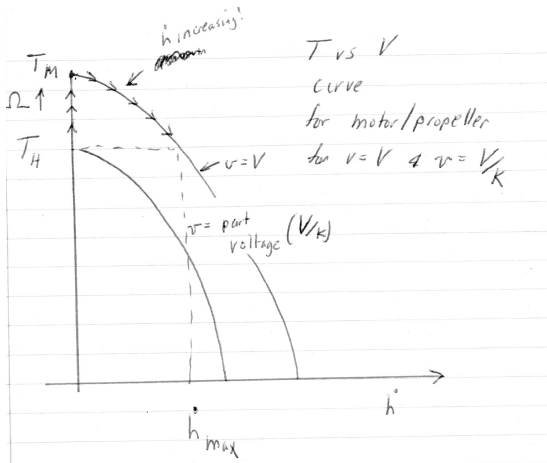 ḣ increasing!
T_M
Ω ↑
T_H
T vs V
curve
for motor/propeller
for v=V & v=V/K
v=V
v= part
voltage (V/K)
ḣ
ḣ max